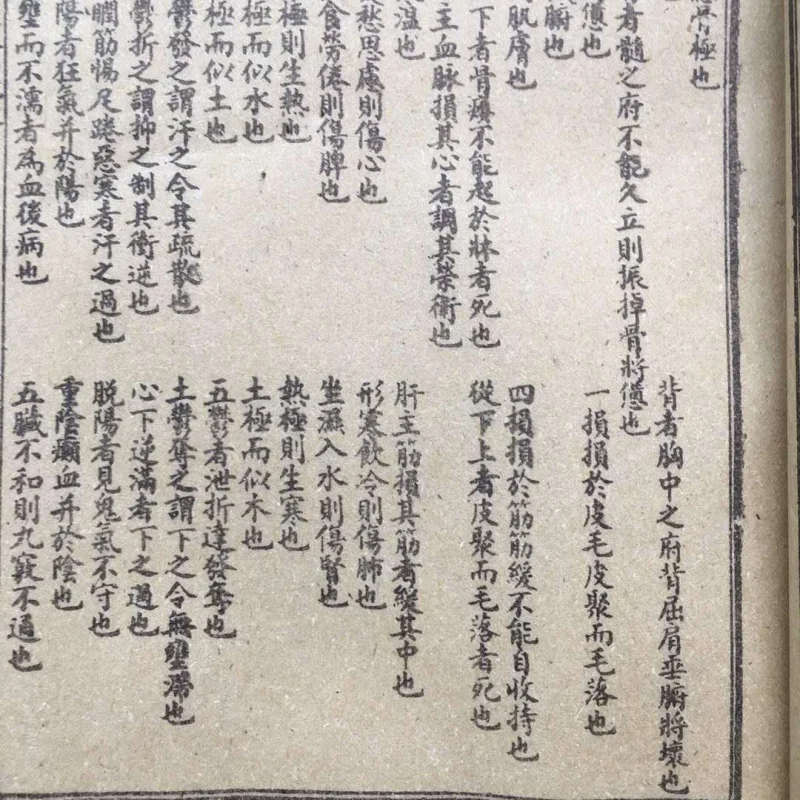 骨極也
背者胸中之府背屈肩垂腑將壞也
者髓之府不能久立則振掉骨將憊也
憊也
一損損於皮毛皮聚而毛落也
腑也
肌膚也
四損損於筋筋緩不能自收持也
下者骨痿不能起於牀者死也
從下上者皮聚而毛落者死也
主血脉損其心者調其榮衛也
溫也
肝主筋損其筋者緩其中也
愁思慮則傷心也
形寒飲冷則傷肺也
食勞倦則傷脾也
坐濕入水則傷腎也
極則生熱也
熱極則生寒也
極而似水也
土極而似木也
極而似土也
五鬱者泄折達發奪也
鬱發之謂汗之令其疏散也
土鬱奪之謂下之令無壅滯也
鬱折之謂抑之制其衝逆也
心下逆滿者下之過也
瞤筋惕足踡惡寒者汗之過也
脫陽者見鬼氣不守也
陽者狂氣并於陽也
重陰癲血并於陰也
壅而不濡者為血後病也
五臟不和則九竅不通也